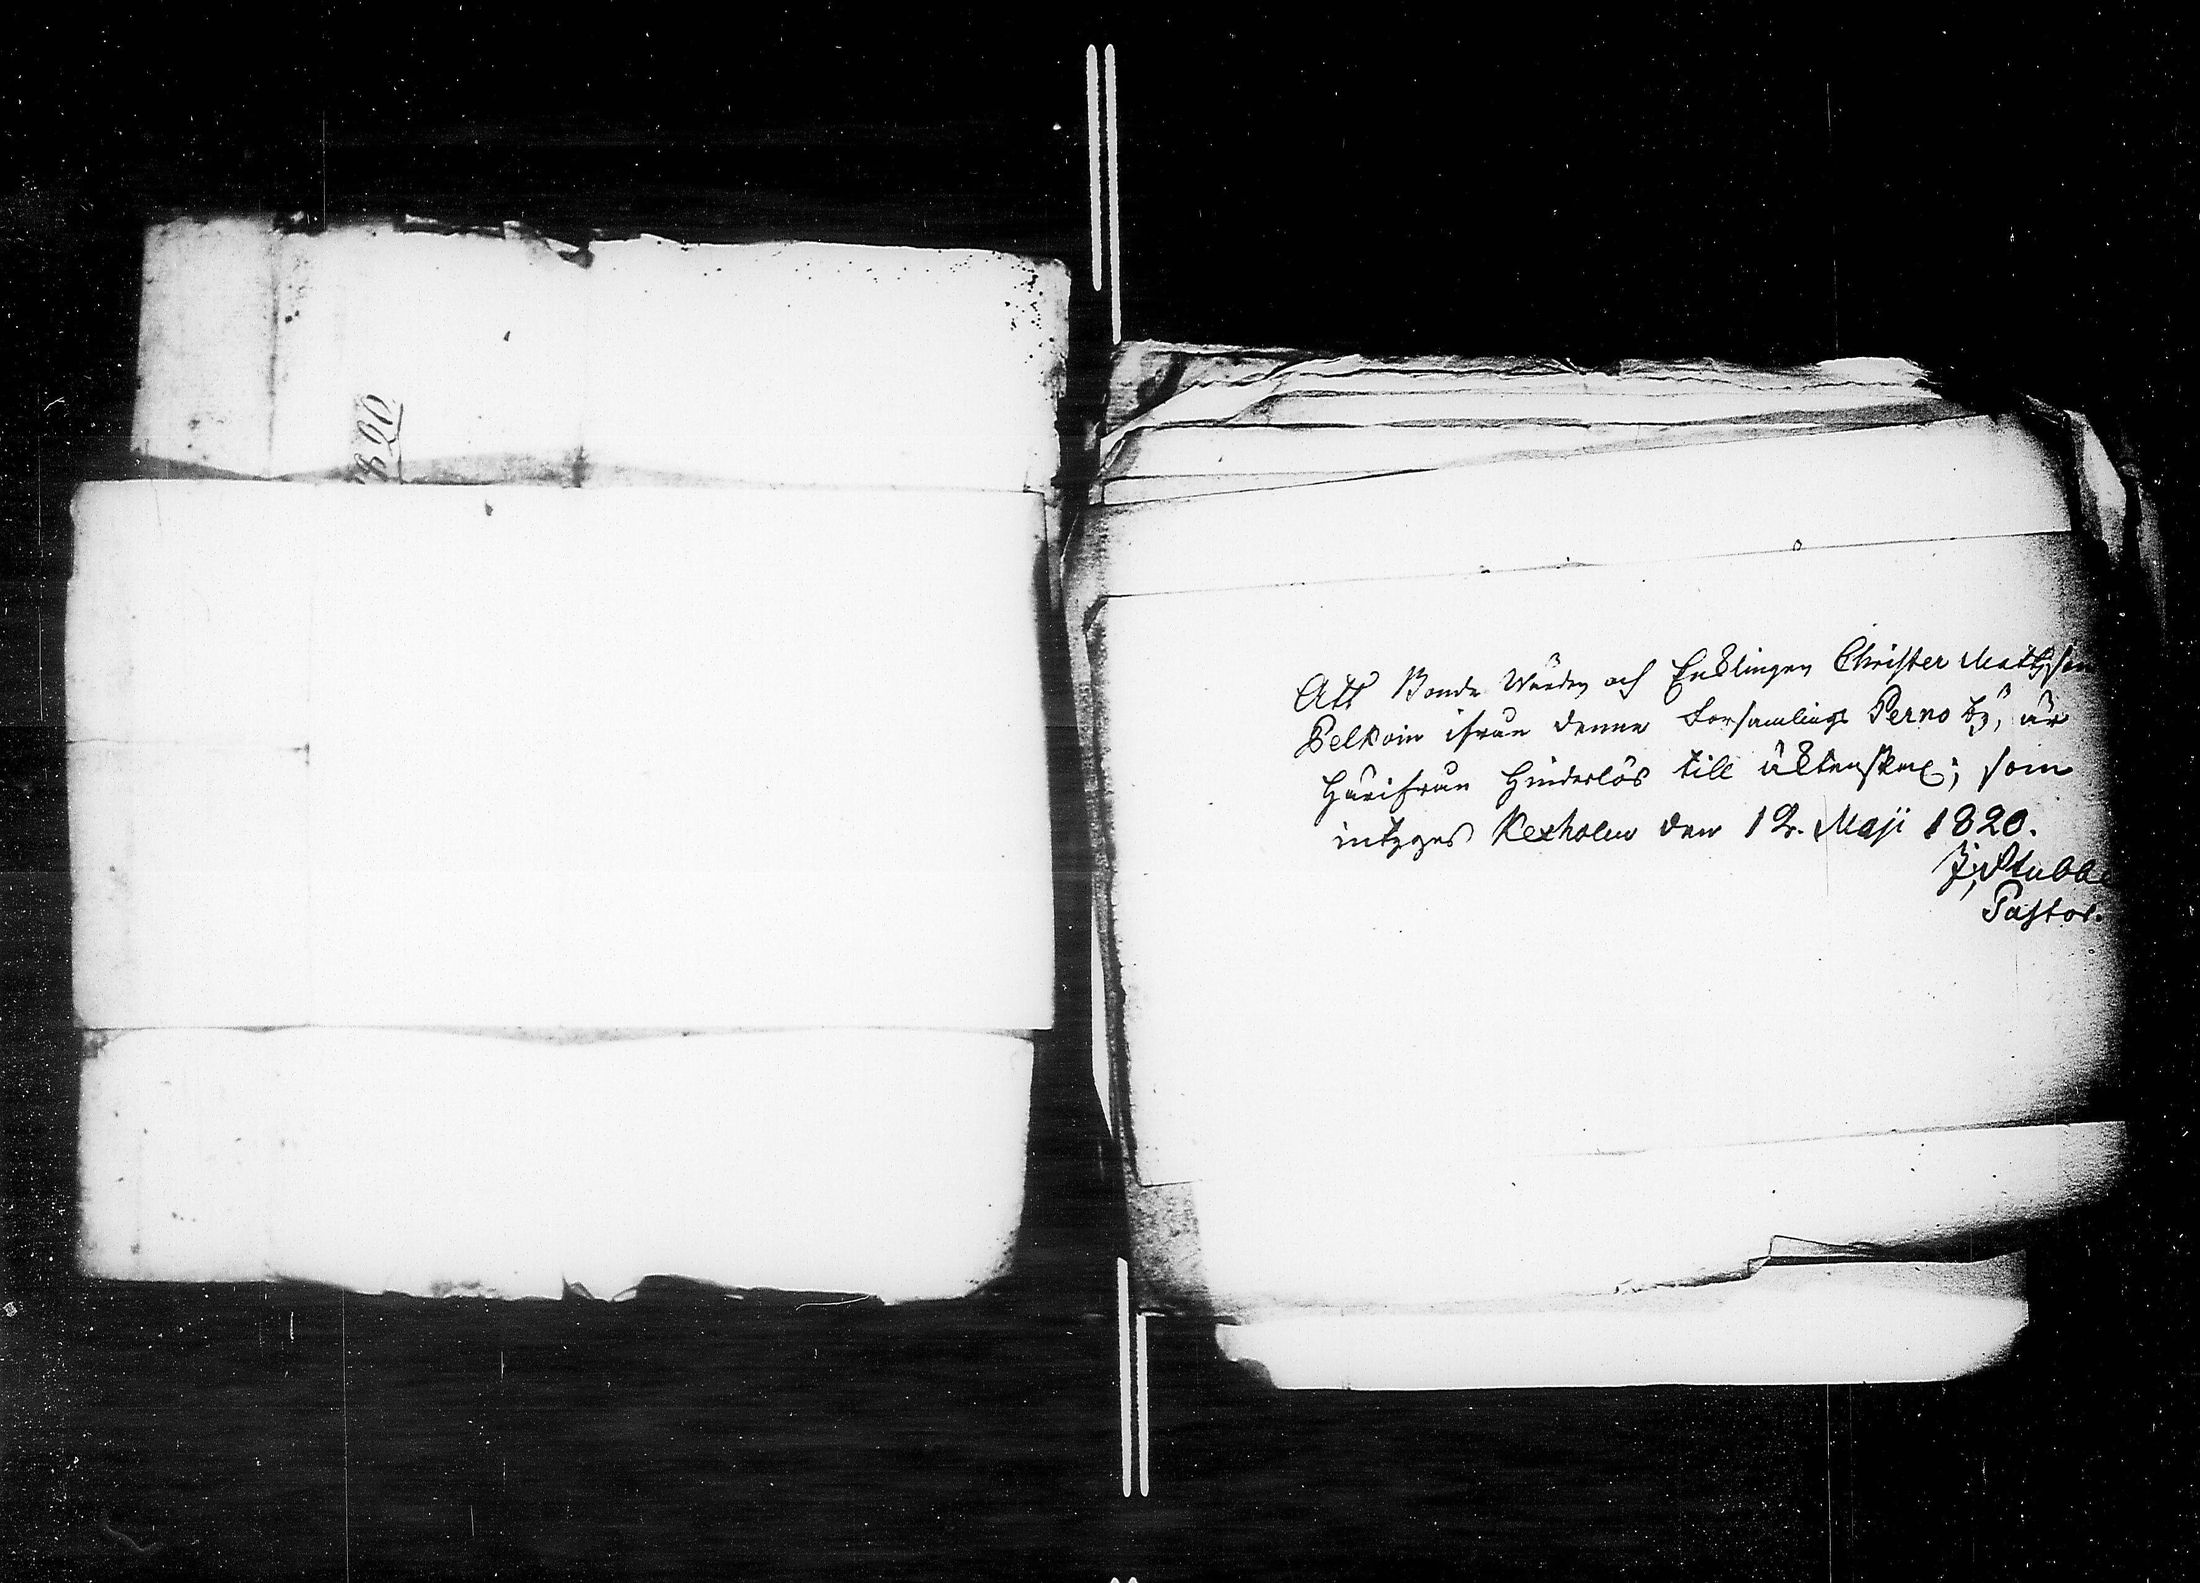 820
Att Bonde Würden och Enklingen Christer Mattsson
Pelkoin ifrån denne Församlings Perno by, är
Härifrån Hinderlös till äktenskap; som
intygas Kexholm den 12. Maji 1820.
J. Stubbe
Pastor.